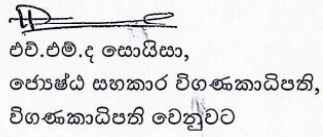 එච්.එම්.ද සොයිසා,
ජ්‍යෙෂ්ඨ සහකාර විගණකාධිපති,
විගණකාධිපති වෙනුවට